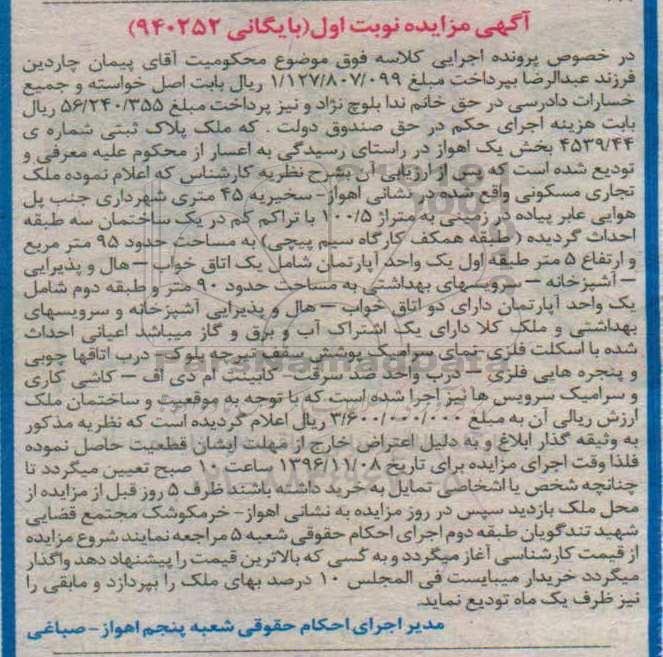 آگهی مزایده نوبت اول(بایگانی ۹۴۰۲۵۲)
در خصوص پرونده اجرایی کلاسه فوق موضوع محکومیت آقای پیمان چاردین
فرزند عبدالرضا بپرداخت مبلغ ۱/۱۲۷/۸۰۷/۰۹۹ ریال بابت اصل خواسته و جمیع
خسارات دادرسی در حق خانم ندا بلوچ نژاد و نیز پرداخت مبلغ ۵۶/۲۴۰/۳۵۵ ریال
بابت هزینه اجرای حکم در حق صندوق دولت . که ملک پلاک ثبتی شماره ی
۴۵۳۹/۴۴ بخش یک اهواز در راستای رسیدگی به اعسار از محکوم علیه معرفی و
تودیع شده است که پس از ارزیابی آن بشرح نظریه کارشناس که اعلام نموده ملک
تجاری مسکونی واقع شده در نشانی اهواز- سخیریه ۴۵ متری شهرداری جنب پل
هوایی عابر پیاده در زمینی به متراژ ۱۰۰/۵ با تراکم کم در یک ساختمان سه طبقه
احداث گردیده (طبقه همکف کارگاه سیم پیچی) به مساحت حدود ۹۵ متر مربع
و ارتفاع ۵ متر طبقه اول یک واحد آپارتمان شامل یک اتاق خواب – هال و پذیرایی
– آشپزخانه – سرویسهای بهداشتی به مساحت حدود ۹۰ متر و طبقه دوم شامل
یک واحد آپارتمان دارای دو اتاق خواب – هال و پذیرایی آشپزخانه و سرویسهای
بهداشتی و ملک کلا دارای یک اشتراک آب و برق و گاز میباشد اعیانی احداث
شده با اسکلت فلزی- نمای سرامیک پوشش سقف تیرچه بلوک – درب اتاقها چوبی
و پنجره هایی فلزی – درب واحد ضد سرقت- کابینت ام دی اف – کاشی کاری
و سرامیک سرویس ها نیز اجرا شده است که با توجه به موقعیت و ساختمان ملک
ارزش ریالی آن به مبلغ ۳/۶۰۰/۰۰۰/۰۰۰ ریال اعلام گردیده است که نظریه مذکور
به وثیقه گذار ابلاغ و به دلیل اعتراض خارج از مهلت ایشان قطعیت حاصل نموده
فلذا وقت اجرای مزایده برای تاریخ ۱۳۹۶/۱۱/۰۸ ساعت ۱۰ صبح تعیین میگردد تا
چنانچه شخص یا اشخاصی تمایل به خرید داشته باشند ظرف ۵ روز قبل از مزایده از
محل ملک بازدید سپس در روز مزایده به نشانی اهواز- خرمکوشک مجتمع قضایی
شهید تندگویان طبقه دوم اجرای احکام حقوقی شعبه ۵ مراجعه نمایند شروع مزایده
از قیمت کارشناسی آغاز میگردد و به کسی که بالاترین قیمت را پیشنهاد دهد واگذار
میگردد خریدار میبایست فی المجلس ۱۰ درصد بهای ملک را بپردازد و مابقی را
نیز ظرف یک ماه تودیع نماید.
مدیر اجرای احکام حقوقی شعبه پنجم اهواز- صباغی